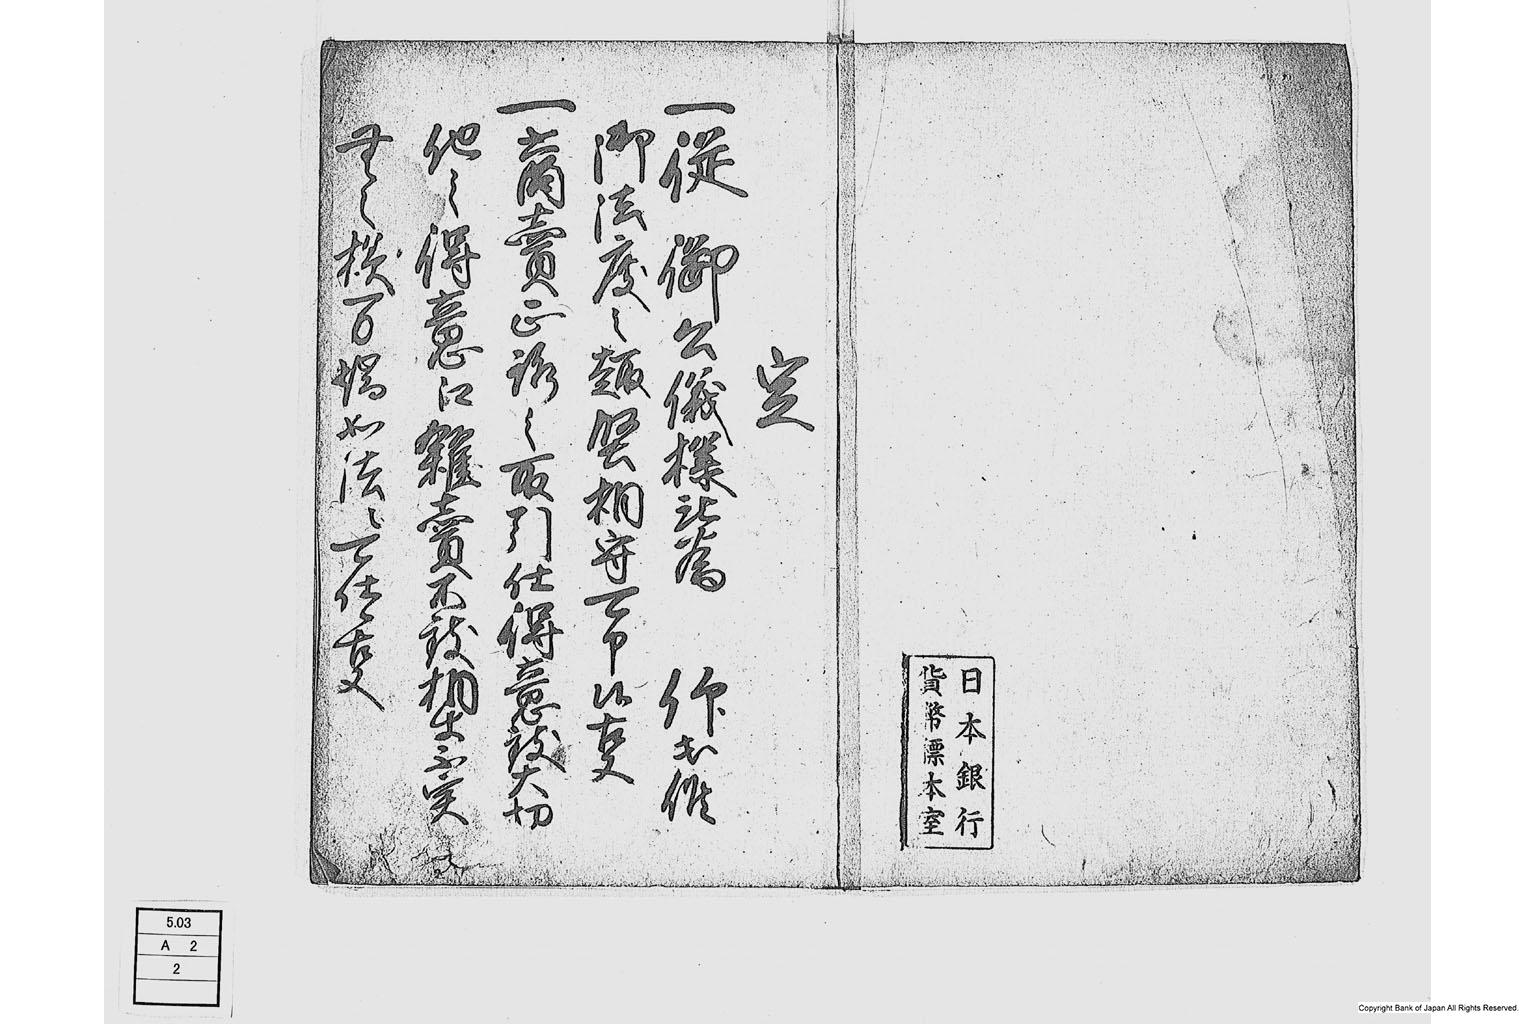 日本銀行
貨幣標本室
定
一従 御公儀様被為 仰出候
御法度之趣堅相守可申候事
一商賣正路之取引仕得意致大切
他之得意江雑賣不致相互ニ実
意之
万端如法ニ可仕事
5.03
A 2
2
Copyright Bank of Japan All Rights Reserved.